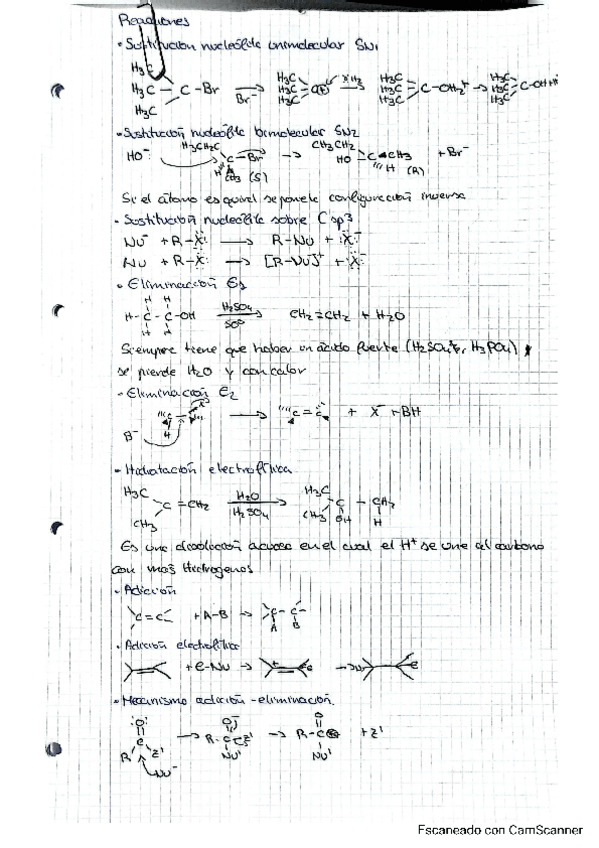 Reacciones
· Sustitución nucleófila unimolecular SN1
H3C
H3C — C - Br → Br⁻ H3C H3C H3C C⊕ → H3C H3C H3C C-OH2⁺ → H3C H3C H3C
H3C
· Sustitución nucleófila bimolecular SN2
HO⁻: H3CH2C C-Br H CH3 (S) → CH3CH2 HO C CH3 H (R) + Br⁻
Si el átomo es quiral se pone la configuración inversa
· Sustitución nucleófila sobre Csp3
Nu⁻ + R-X: → R-Nu + :X:⁻
Nu + R-X: → [R-Nu]⁺ + :X:⁻
· Eliminación E1
H H
H-C-C-OH H2SO4 → CH2=CH2 + H2O
H H
Siempre tiene que haber un ácido fuerte (H2SO4, H3PO4) y
se pierde H2O y con calor
· Eliminación E2
B⁻ H → C=C + X⁻ + BH
· Hidratación electrofílica
H3C C=CH2 CH3 H2O H2SO4 → H3C CH3 C OH - CH2 H
Es una disolución acuosa en el cual el H⁺ se une al carbono
con mas Hidrogenos
· Adición
C=C + A-B → C-C A B
· Adición electrofílica
+ e-Nu → + e → Nu e
· Mecanismo adición-eliminación.
:O: C R Z' Nu⁻ → R-C-Z' Nu' → O R-C Nu' + Z'
Escaneado con CamScanner